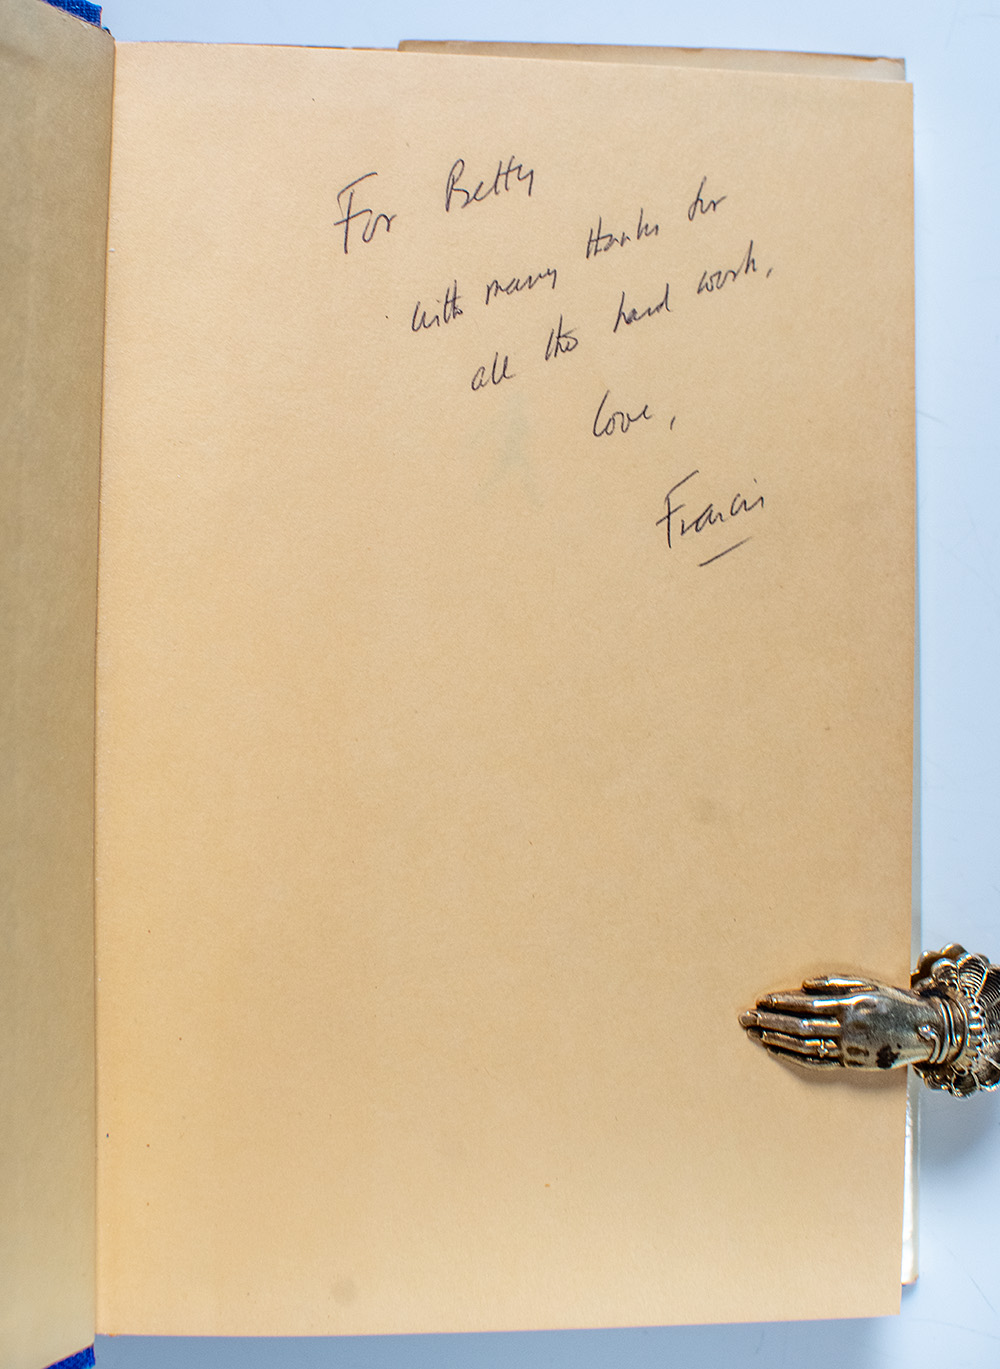 For Betty
with many thanks for
all the hard work,
love,
Francis